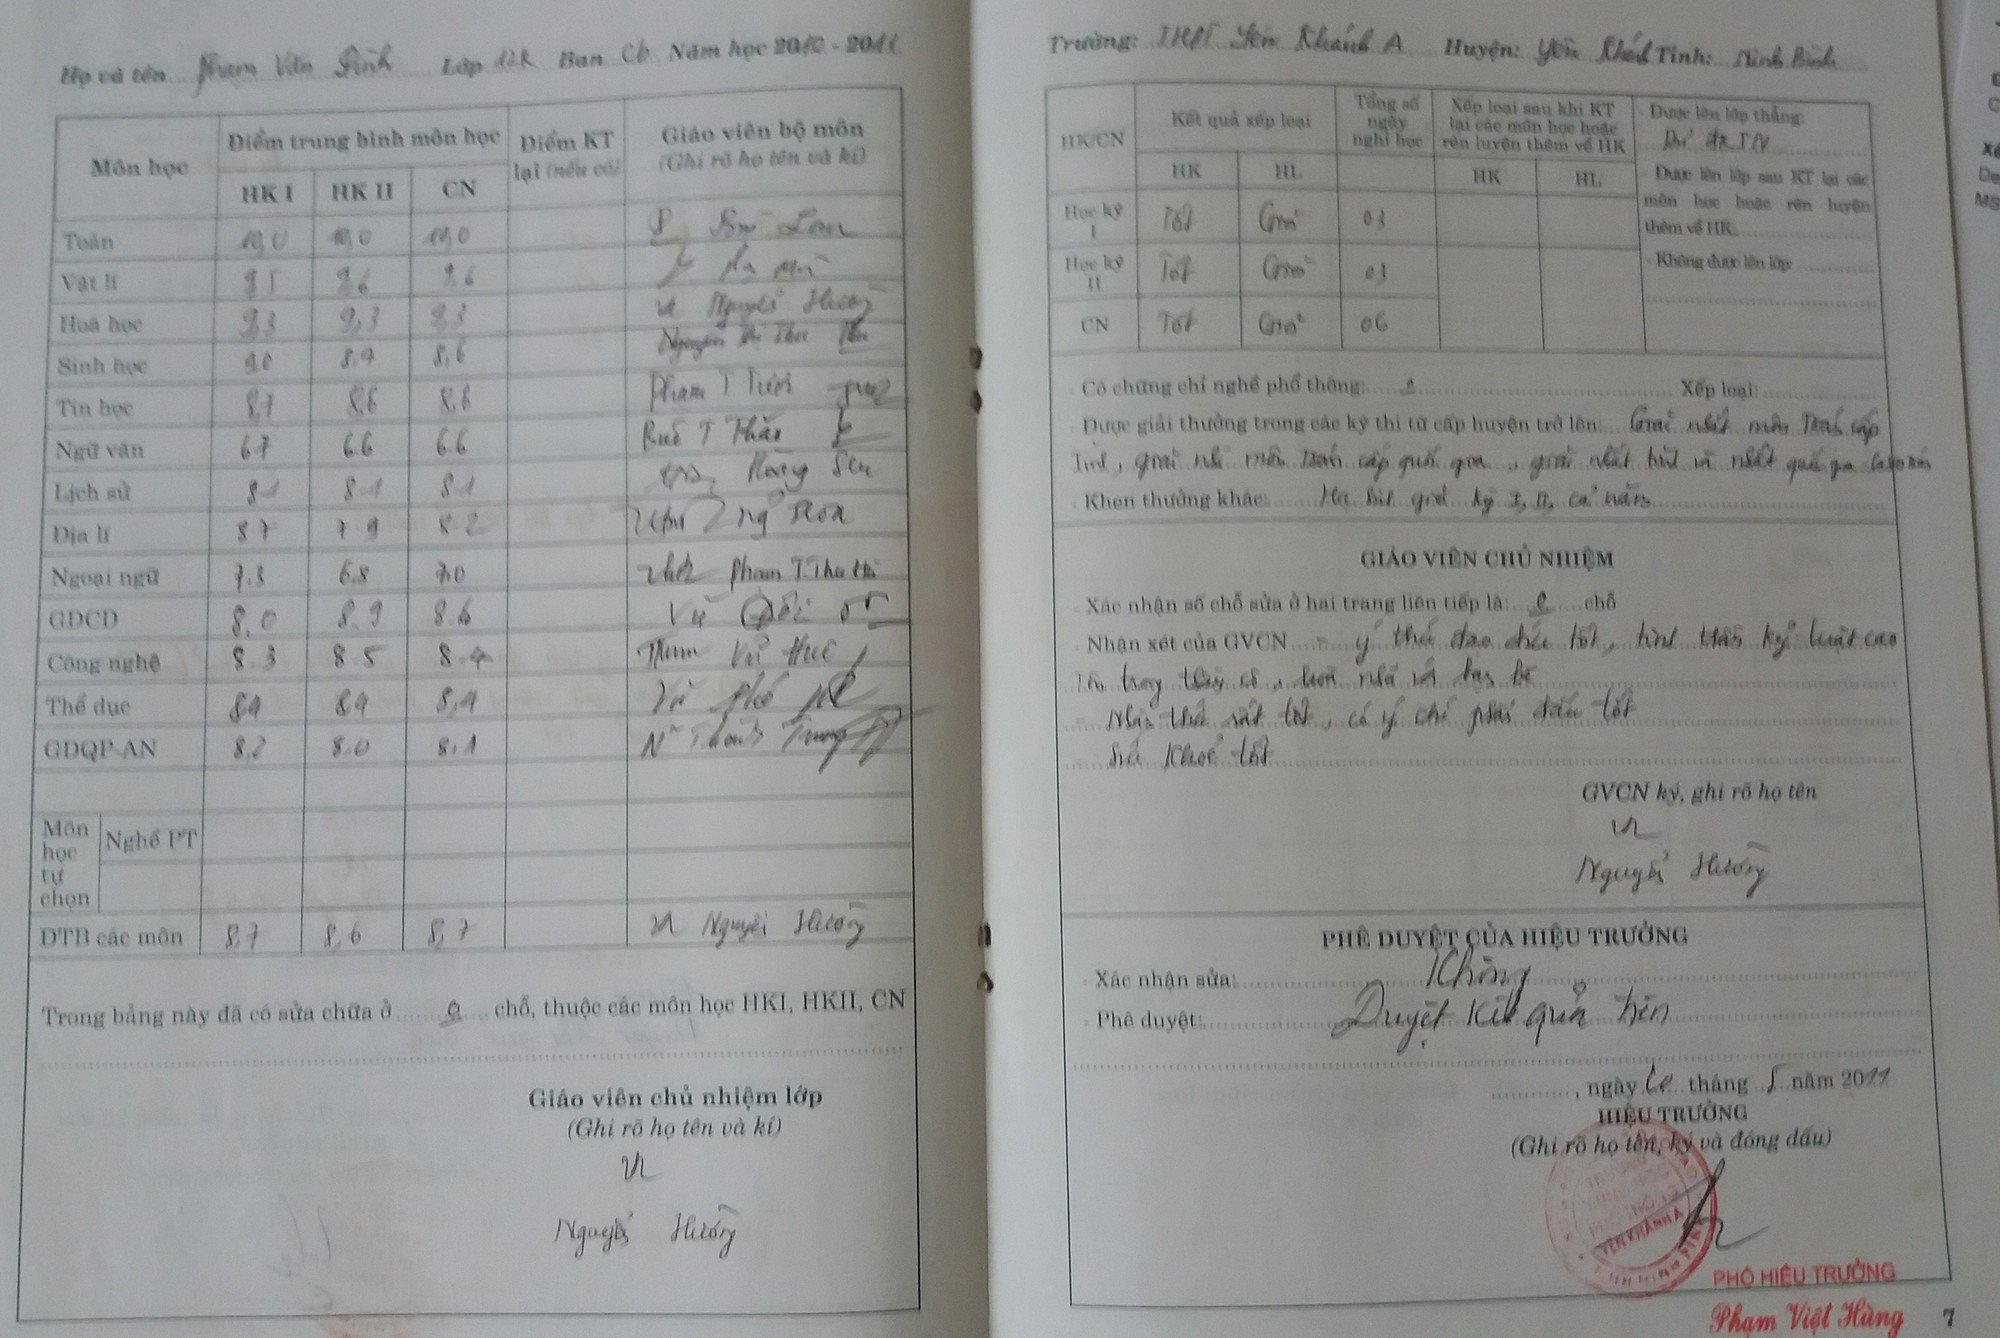 Họ và tên Phạm Văn Đình Lớp 12K Ban Cb Năm học 2010 - 2011
Môn học
Điểm trung bình môn học
Điểm KT lại (nếu có)
Giáo viên bộ môn
(Ghi rõ họ tên và kí)
HK I HK II CN
Toán 10,0 10,0 10,0
Vật lí 9,5 9,6 9,6
Hoá học 9,3 9,3 9,3 Nguyễn Hường
Sinh học 9,0 8,4 8,6 Nguyễn Thị Thu
Tin học 8,7 8,6 8,6 Phạm T Tươi
Ngữ văn 6.7 6.6 6.6 T Thảo
Lịch sử 8.1 8.1 8.1 Hoàng Sen
Địa lí 8.7 7.9 8.2
Ngoại ngữ 7.3 6.8 7.0 Phạm T. Thu Hà
GDCD 8,0 8,9 8.6 Vũ
Công nghệ 8.3 8.5 8.4 Vũ Huê
Thể dục 8,9 8,9 8,9
GDQP-AN 8.2 8.0 8,1 Thành Trung
Môn học tự chọn
Nghề PT
ĐTB các môn 8,7 8,6 8,7 Nguyễn Hường
Trong bảng này đã có sửa chữa ở 0 chỗ, thuộc các môn học HKI, HKII, CN
Giáo viên chủ nhiệm lớp
(Ghi rõ họ tên và kí)
Nguyễn Hường
Trường: THPT Yên Khánh A Huyện: Yên Khánh Tỉnh: Ninh Bình
HK/CN
Kết quả xếp loại
Tổng số ngày nghỉ học
Xếp loại sau khi KT lại các môn học hoặc rèn luyện thêm về HK
HK HL HK HL
Học kỳ I Tốt Giỏi 03
Học kỳ II Tốt Giỏi 03
CN Tốt Giỏi 06
- Được lên lớp thẳng:
- Được lên lớp sau KT lại các
môn học hoặc rèn luyện
thêm về HK
- Không được lên lớp:
- Có chứng chỉ nghề phổ thông: 0 Xếp loại:
- Được giải thưởng trong các kỳ thi từ cấp huyện trở lên: Giải nhất môn Toán cấp
Tỉnh, giải nhì môn toán cấp quốc gia, giải nhất tỉnh và nhất quốc gia
- Khen thưởng khác: Học sinh giỏi kỳ I, II, cả năm
GIÁO VIÊN CHỦ NHIỆM
- Xác nhận số chỗ sửa ở hai trang liên tiếp là: 0 chỗ
- Nhận xét của GVCN - ý thức đạo đức tốt, tinh thần kỷ luật cao
Tôn trọng thầy cô, hoà nhã với bạn bè
- Nhận thức rất tốt, có ý chí phấn đấu tốt
- Sức khoẻ tốt
GVCN ký, ghi rõ họ tên
Nguyễn Hường
PHÊ DUYỆT CỦA HIỆU TRƯỞNG
- Xác nhận sửa: Không
- Phê duyệt: Duyệt kết quả trên
, ngày tháng 5 năm 2011
HIỆU TRƯỞNG
(Ghi rõ họ tên, ký và đóng dấu)
TRƯỜNG
TRUNG HỌC
PHỔ THÔNG
YÊN KHÁNH A
PHÓ HIỆU TRƯỞNG
Phạm Việt Hùng
7